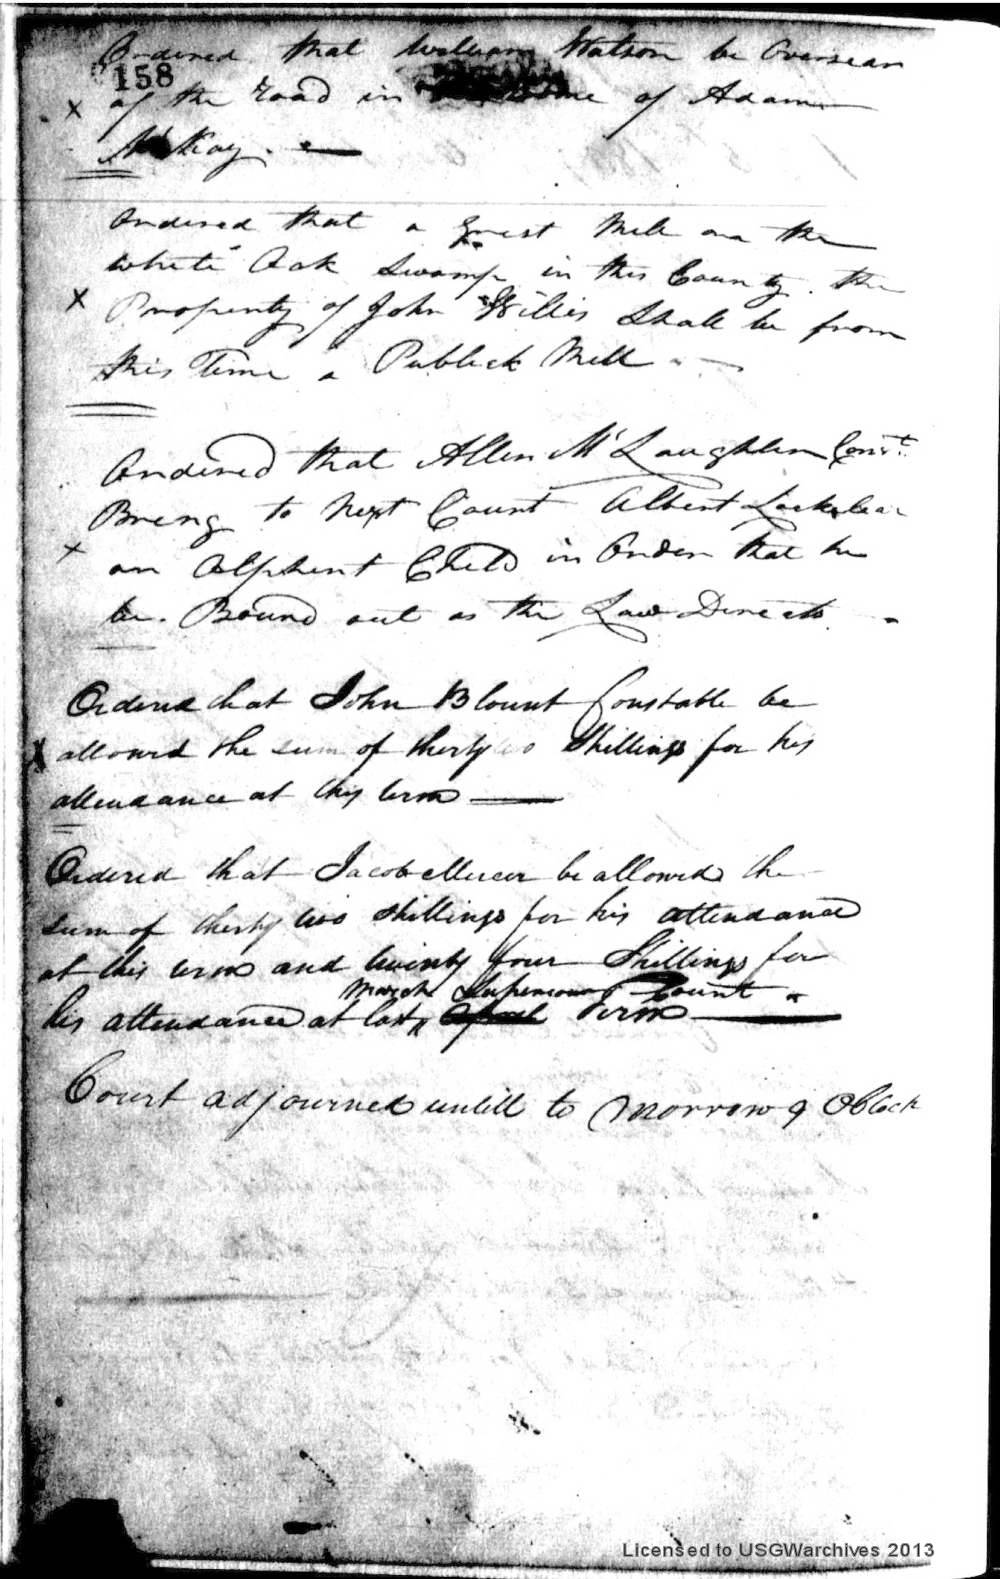 Ordered that William Watson be Overseer
158
x of the road in Rome of Adam
McKay.
Ordered that a Grist Mill on the
white Oak Swamp in this County. the
x Properity of John Willis Shall be from
this Time a Publick Mill
Ordered that Allen McLaughlin Const.
Breng to Next Court Albert Locklear
x an Olphent Child in Order that he
be. Bound out as the Law Directs.
Ordered that John Blount Constable be
x allowed the sum of therty two Shillings for his
attendance at this term
Ordered that Jacob Mercer be allowed the
sum of therty two shillings for his attendance
at this term and twinty four Shillings for
March Superiour Court
his attendance at last Term
Court adjourned untill to Morrow 9 OClock
Licensed to USGWarchives 2013